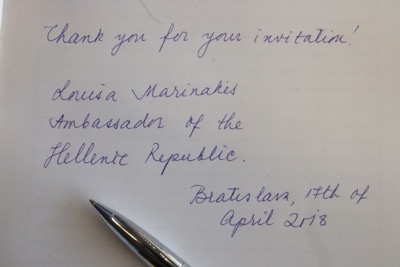 Thank you for your invitation!
Louisa Marinakis
Ambassador of the
Hellenic Republic.
Bratislava, 17th of
April 2018